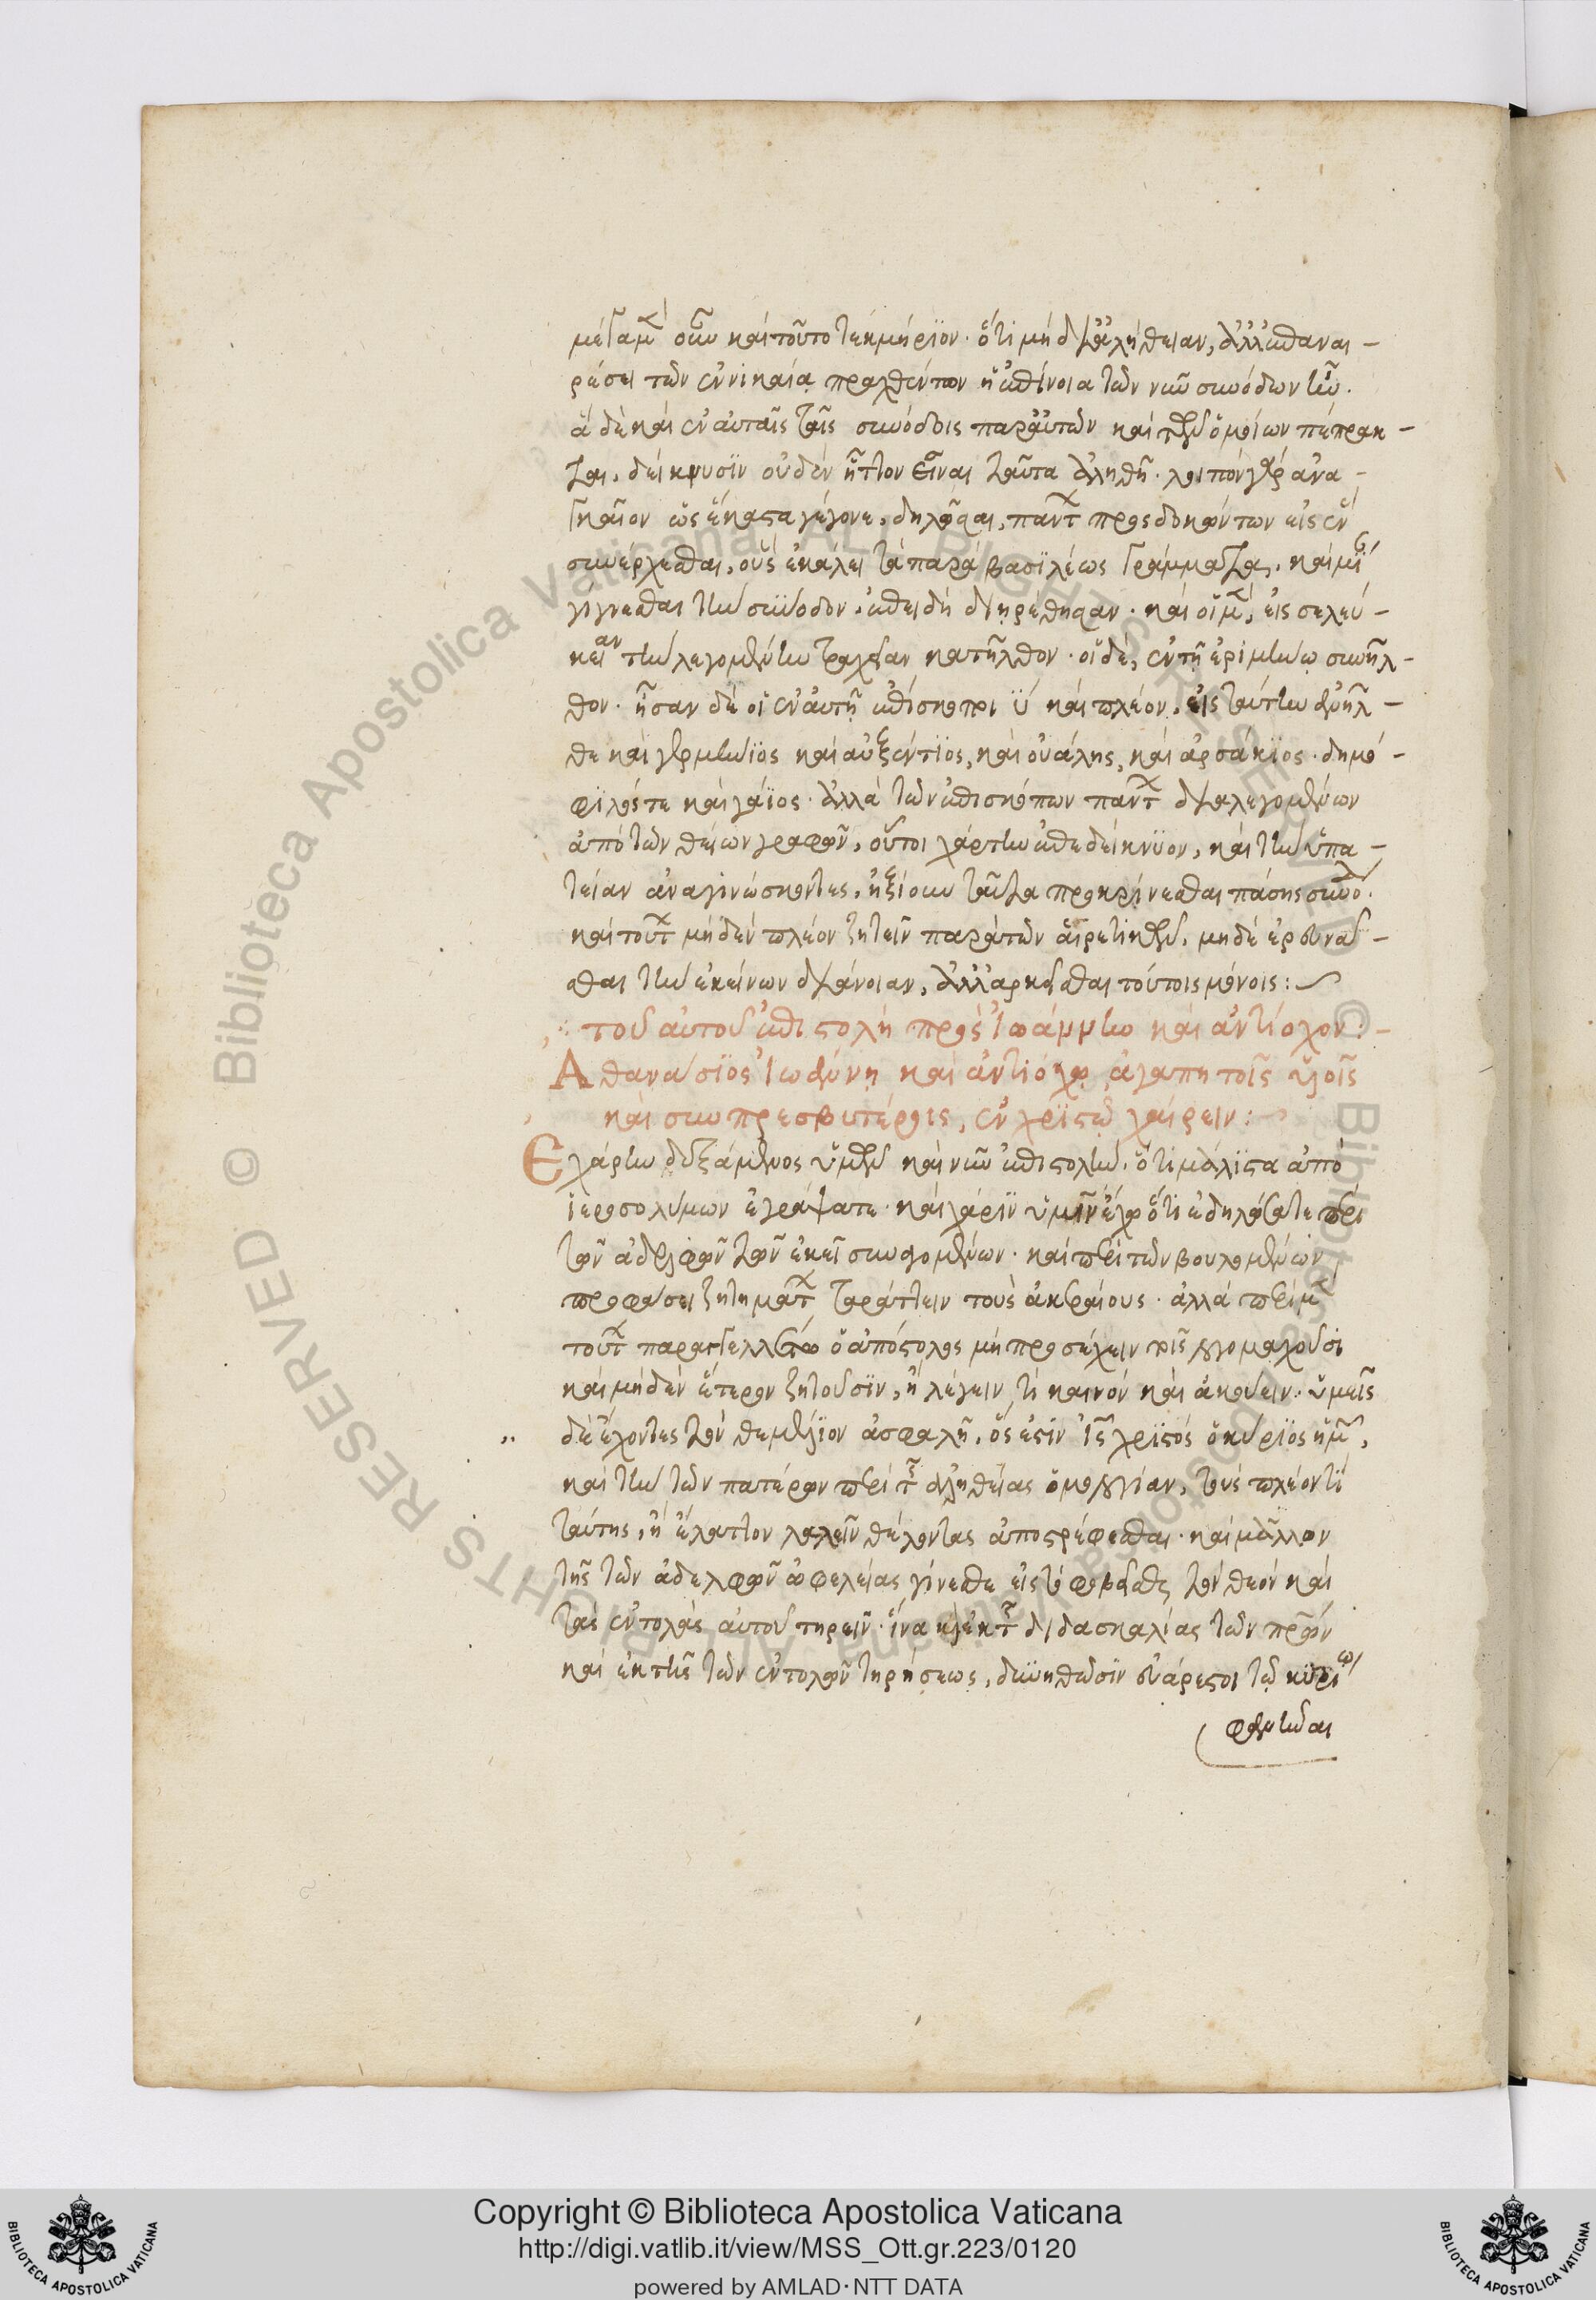 μέγα μὲν οὖν καὶ τοῦτο τεκμήριον· ὅτι μὴ δι' ἀλήθειαν, ἀλλ' ἐπ' ἀναι-
ρέσει τῶν ἐν νικαίᾳ πραχθέντων ἡ ἐπίνοια τῶν νῦν συνόδων ἦν.
ἃ δὲ καὶ ἐν αὐταῖς ταῖς συνόδοις παρ' αὐτῶν καὶ τῶν ὁμοίων πέπρακ-
ται, δείκνυσϊν οὐδὲν ἧττον εἶναι ταῦτα ἀληθῆ· λοιπὸν γὰρ ἀνα-
γκαῖον ὡς ἕκαστα γέγονε, δηλῶσαι, πάντων προσδοκώντων εἰς ἓν
συνέρχεσθαι, οὓς ἐκάλει τὰ παρὰ βασϊλέως γράμματα, καὶ μίαν
γίγνεσθαι τὴν σύνοδον, ἐπειδὴ διῃρέθησαν· καὶ οἱ μὲν, εἰς σελεύ-
κειαν τὴν λεγομένην τραχεῖαν κατῆλθον· οἱ δὲ, ἐν τῇ ἐριμήνῳ συνῆλ-
θον· ἦσαν δὲ οἱ ἐν αὐτῇ ἐπίσκοποι ϋ καὶ πλέον, εἰς ταύτην συνῆλ-
θε καὶ γερμήνϊος καὶ αὐξέντϊος, καὶ οὐάλης, καὶ ἀρσάκϊος· δημό-
φϊλός τε καὶ γάϊος· ἀλλὰ τῶν ἐπισκόπων πάντων διαλεγομένων
ἀπὸ τῶν θείων γραφῶν, οὗτοι χάρτην ἐπεδείκνϋον, καὶ τὴν ὑπα-
τείαν ἀναγινώσκοντες, ἠξίουν ταῦτα προκρίνεσθαι πάσης συνόδου
καὶ τούτων μηδὲν πλέον ζητεῖν παρὰ τῶν αἱρετικῶν, μηδὲ ἐρευνᾶ-
σθαι τὴν ἐκείνων διάνοιαν, ἀλλ' ἀρκεῖσθαι τούτοις μόνοις:
τοῦ αὐτοῦ ἐπιστολὴ πρὸς Ἰωάννην καὶ ἀντίοχον:-
Ἀθανάσϊος Ἰωάννῃ καὶ ἀντιόχῳ ἀγαπητοῖς υἱοῖς
καὶ συμπρεσβυτέροις, ἐν χρϊστῷ χαίρειν:
Ἐχάρην δεξάμενος ὑμῶν καὶ νῦν ἐπιστολὴν, ὅτι μάλϊστα ἀπὸ
ἱεροσολύμων ἐγράψατε· καὶ χάρϊν ὑμῖν ἔχω ὅτι ἐδηλώσατε περὶ
τῶν ἀδελφῶν τῶν ἐκεῖ συναγομένων· καὶ περὶ τῶν βουλομένων
προφάσει ζητημάτων ταράττειν τοὺς ἀκεραίους· ἀλλὰ περὶ μὲν
τούτων παραγγελλέτω ὁ ἀπόστολος μὴ προσέχειν τοῖς λογομαχοῦσι
καὶ μηδὲν ἕτερον ζητοῦσϊν, ἢ λέγειν τὶ καινὸν καὶ ἀκούειν· ὑμεῖς
δὲ ἔχοντες τὸν θεμέλϊον ἀσφαλῆ, ὅς ἐστϊν ἰς χρϊστὸς ὁ κύρϊος ἡμῶν,
καὶ τὴν τῶν πατέρων περὶ τῆς ἀληθείας ὁμολογίαν, τοὺς πλέον τὶ
ταύτης, ἢ ἔλαττον λαλεῖν θέλοντας ἀποστρέφεσθαι· καὶ μᾶλλον
τῆς τῶν ἀδελφῶν ὠφελείας γίνεσθε εἰς τὸ φοβεῖσθαι τὸν θεὸν καὶ
τὰς ἐντολὰς αὐτοῦ τηρεῖν· ἵνα καὶ ἐκ τῆς διδασκαλίας τῶν πρων
καὶ ἐκ τῆς τῶν ἐντολῶν τηρήσεως, δυνηθῶσϊν εὐάρεστοι τῷ κυρίῳ
φανῆναι
Copyright © Biblioteca Apostolica Vaticana
http://digi.vatlib.it/view/MSS_Ott.gr.223/0120
powered by AMLAD·NTT DATA